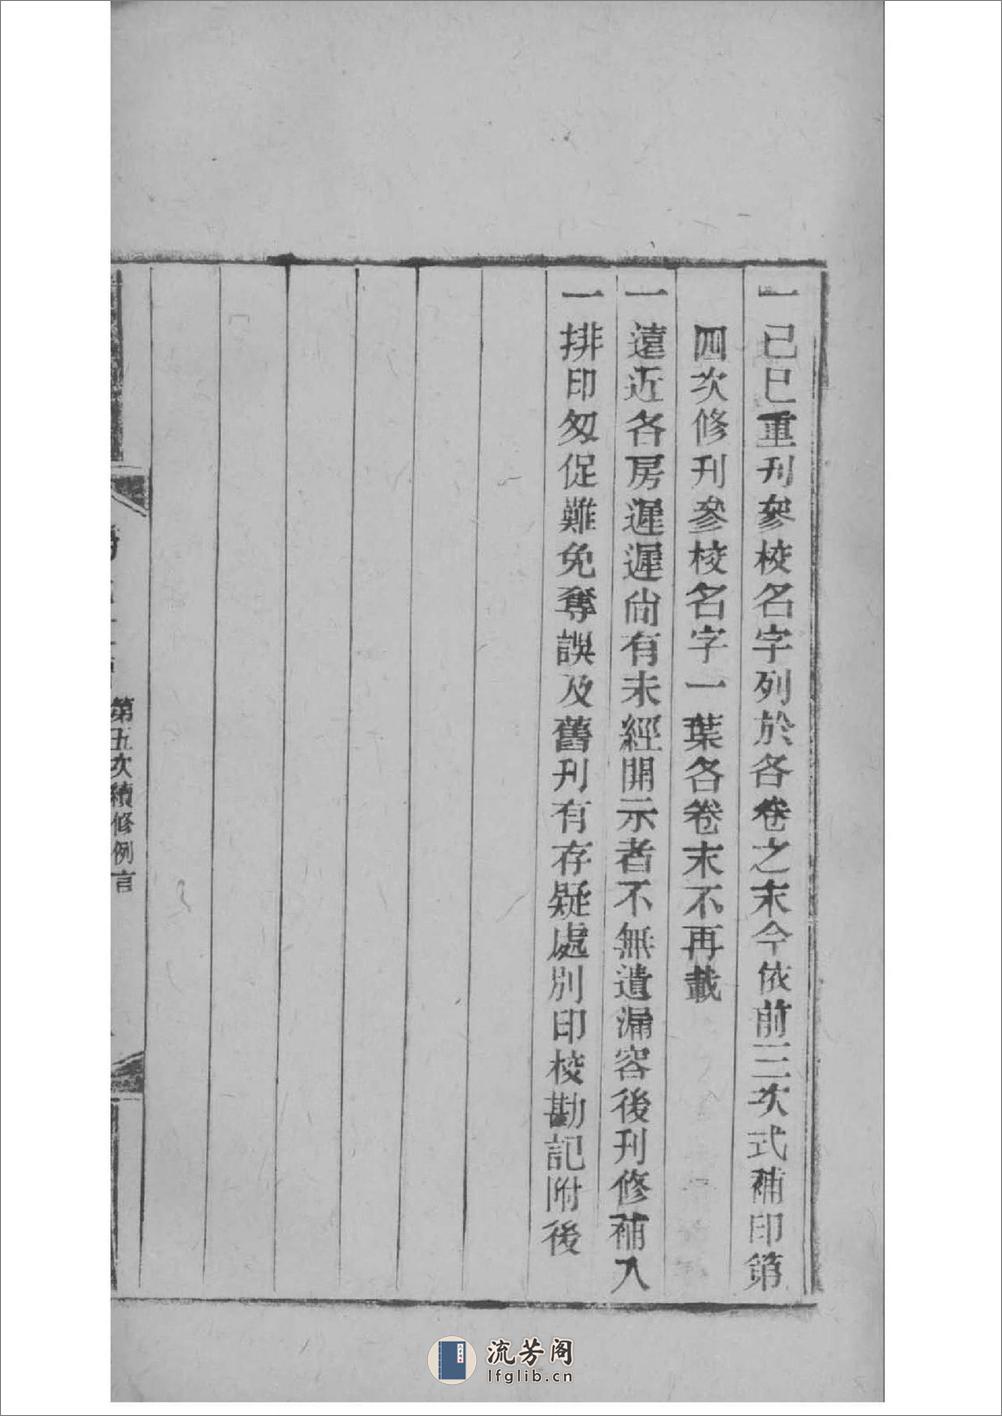 一己巳重刊參校名字列於各卷之末今依前三次式補印第
四次修刊參校名字一葉各卷末不再載
一遠近各房遲遲尙有未經開示者不無遺漏容後刊修補入
一排印匆促難免奪誤及舊刊有存疑處別印校勘記附後
第五次續修例言
流芳阁
lfglib.cn